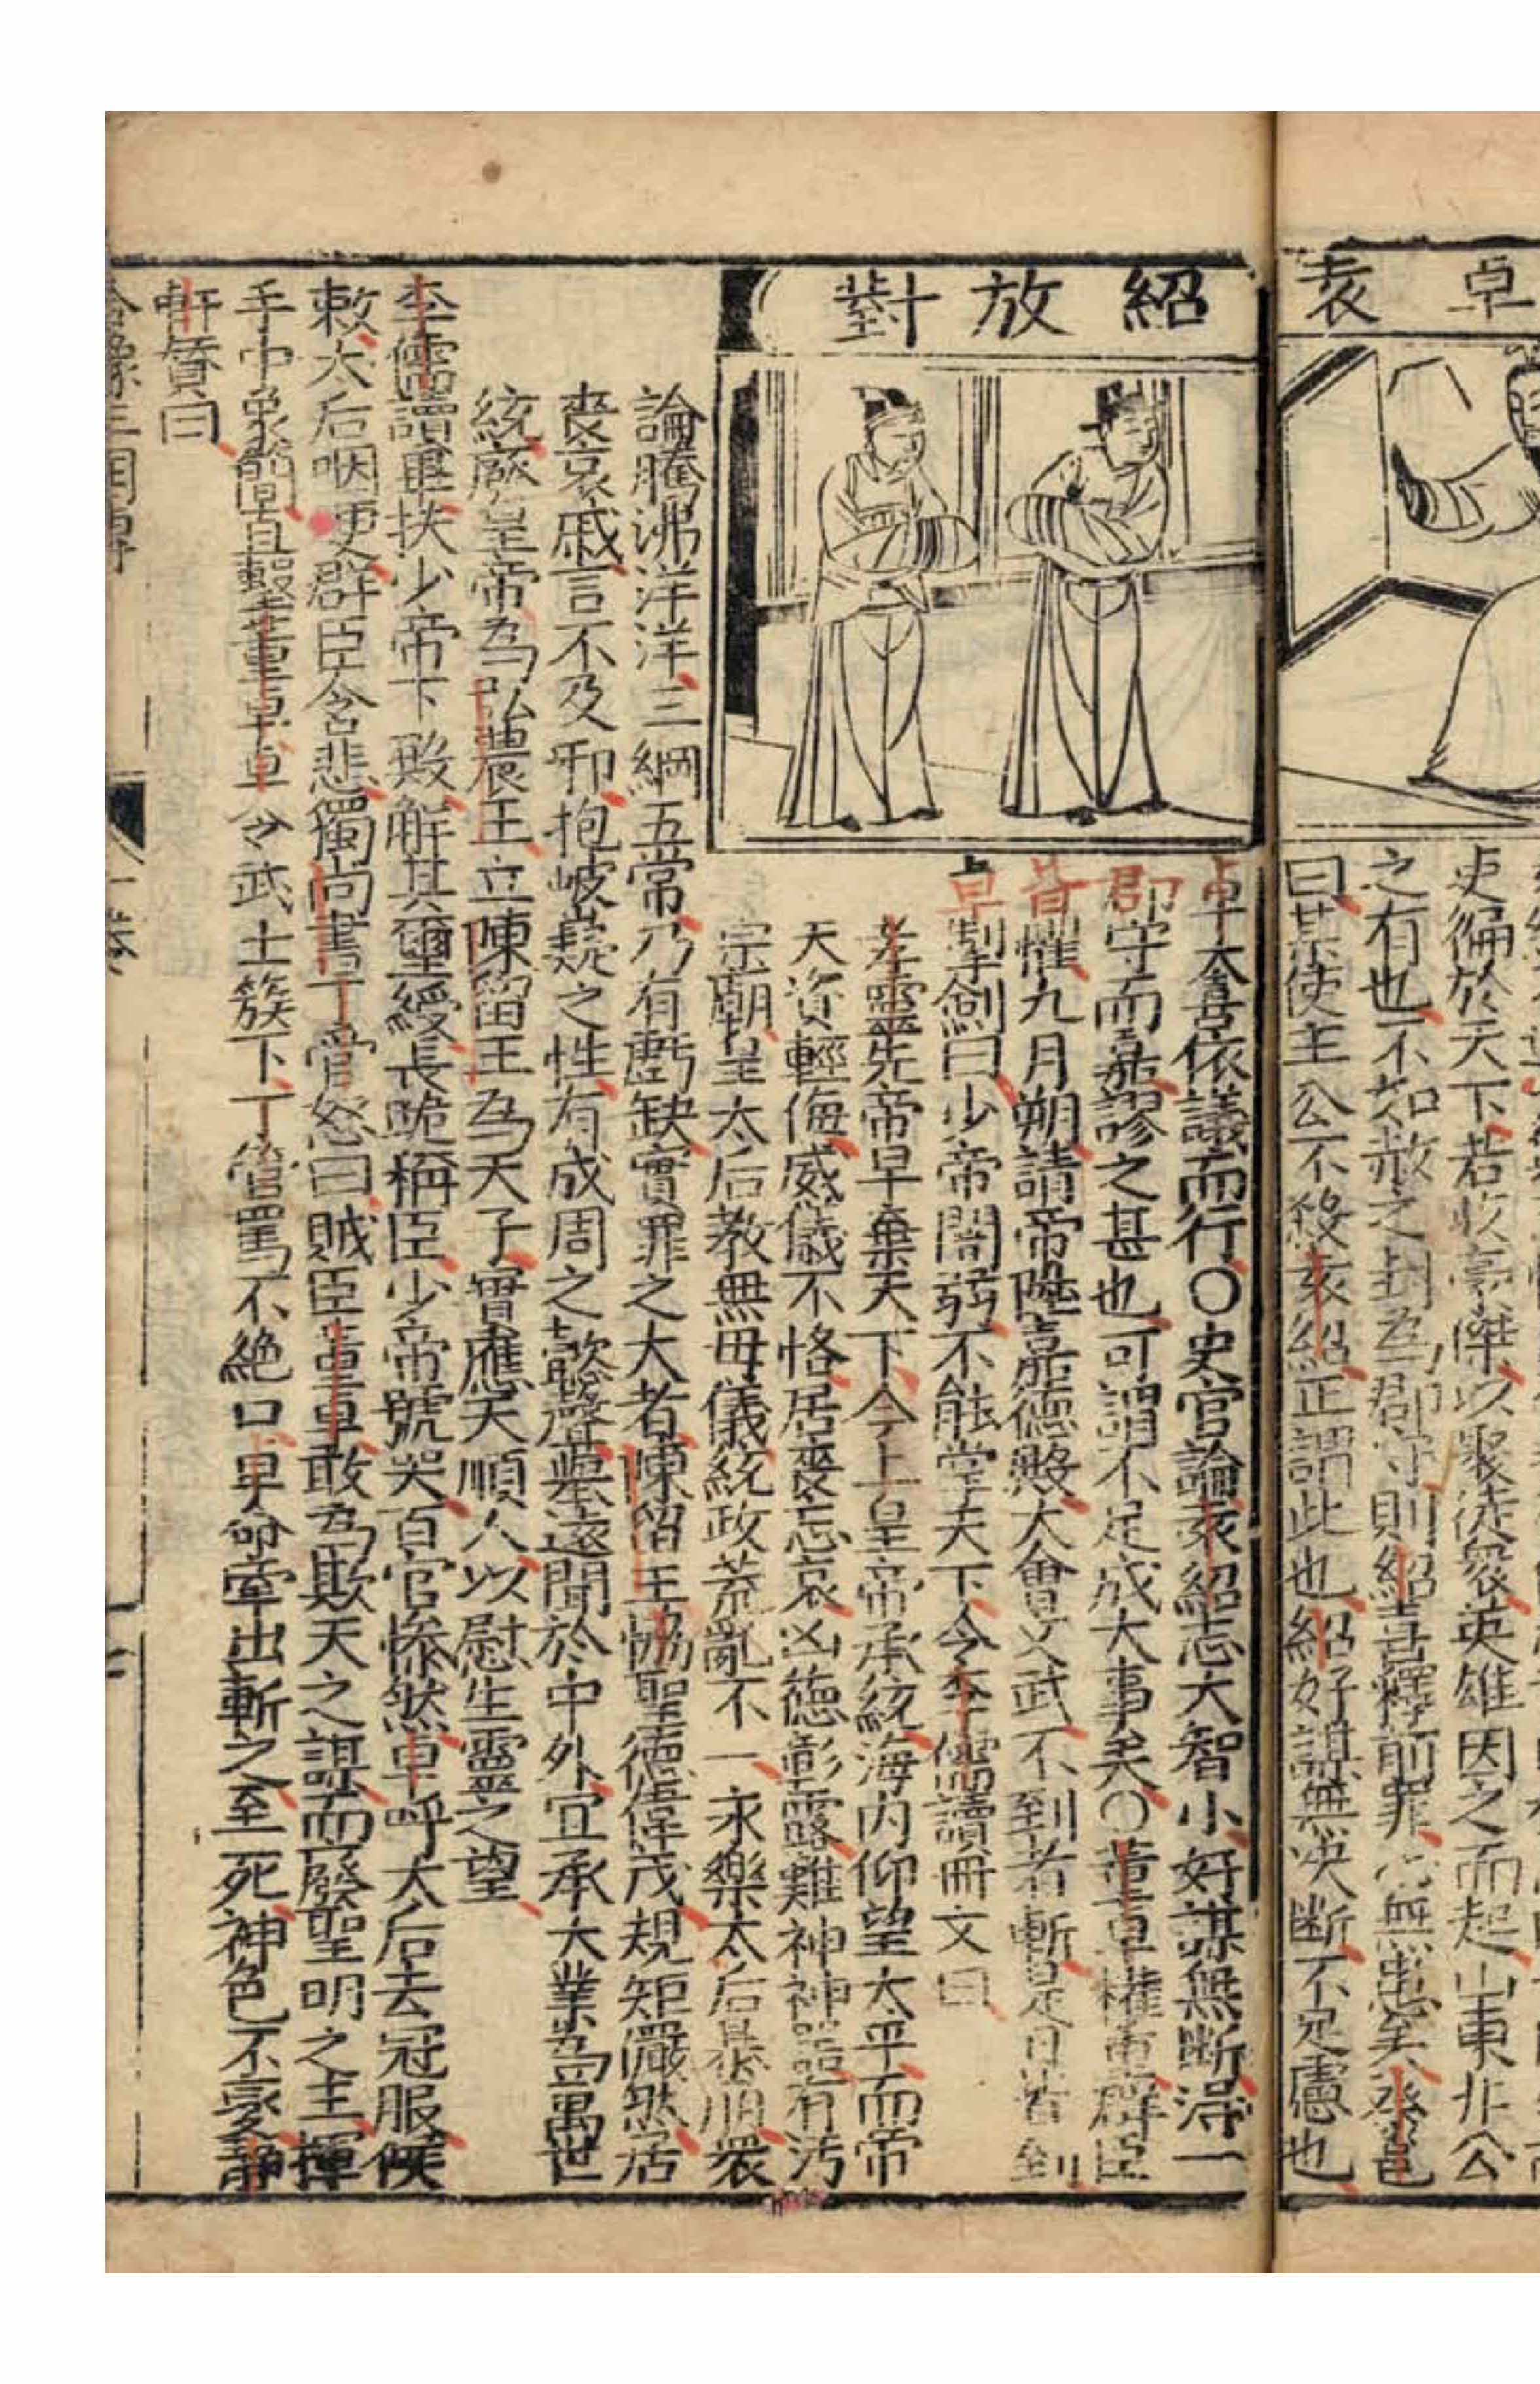 卓袁
吏徧於天下若收豪傑以聚徒衆英雄因之而起山東非公
之有也不如赦之封為郡守則紹喜釋前罪必無患矣蔡邕
曰某使主公不殺袁紹正謂此也紹好謀無決断不足慮也
紹放對
卓大喜依議而行〇史官論袁紹志大智小好謀無断得一
郡守而嘉謬之甚也可謂不足成大事矣〇董卓權重群臣
皆懼九月朔請帝陞嘉德殿大會文武不到者斬是日皆到
卓掣劍曰少帝闇弱不能掌天下令李儒讀冊文曰
孝靈先帝早棄天下今上皇帝承統海內仰望太平而帝
天資輕侮威儀不恪居喪忘哀凶德彰露難神神器有汚
宗廟皇太后教無母儀統政荒亂不一永樂太后暴崩衆
論騰沸洋洋三綱五常乃有虧缺實罪之大者陳留王協聖德偉茂規矩儼然居
喪哀戚言不及邪抱岐嶷之性有成周之懿聲譽遠聞於中外宜承大業為萬世
統廢皇帝為弘農王立陳留王為天子實應天順人以慰生靈之望
李儒讀畢扶少帝下殿解其璽綬長跪稱臣少帝號哭百官慘然卓呼太后去冠服候
敕太后咽哽群臣含悲獨尚書丁管怒曰賊臣董卓敢為欺天之謀而廢聖明之主揮
手中象簡直擊董卓卓令武士簇下丁管罵不絕口卓命牽出斬之至死神色不變靜
軒贊曰
三國傳
一卷
七